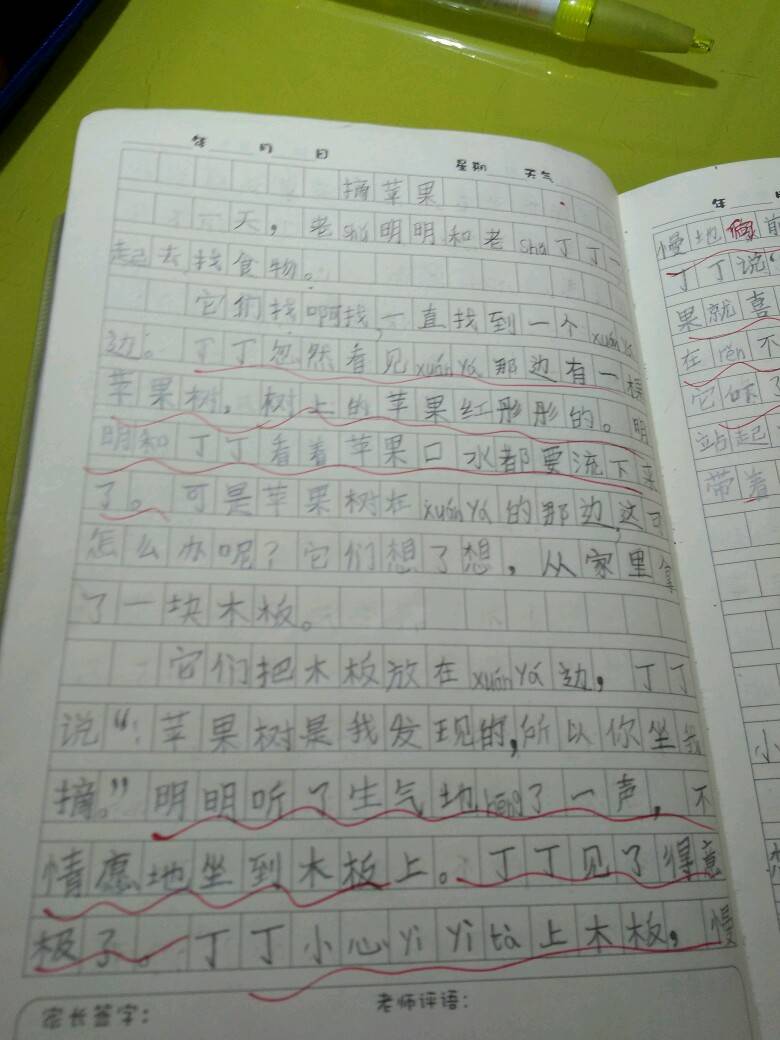 年 月 日 星期 天气
摘苹果
一天，老shǔ明明和老shǔ丁丁一
起去找食物。
它们找啊找，一直找到一个xuán yá
边。丁丁忽然看见xuán yá那边有一棵
苹果树，树上的苹果红彤彤的。明
明和丁丁看着苹果口水都要流下来
了。可是苹果树在xuán yá的那边，这可
怎么办呢？它们想了想，从家里拿
了一块木板。
它们把木板放在xuán yá边，丁丁
说“：苹果树是我发现的，所以你坐我
摘。”明明听了生气地hēng了一声，不
情愿地坐到木板上。丁丁见了得意
极了。丁丁小心yì yì tà上木板，慢
家长签字： 老师评语：
年
慢地向前
丁丁说“
果就喜
在rēn不
它吓了
站起
带着
小